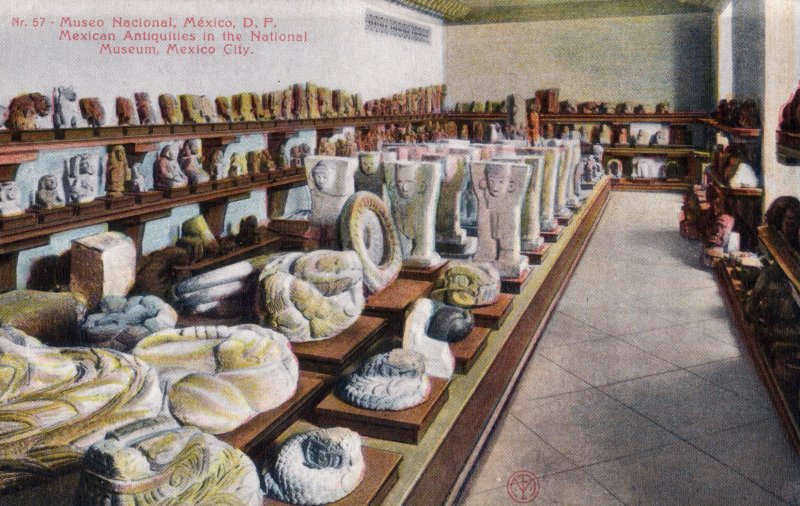 Nr. 57 - Museo Nacional, México, D. F.
Mexican Antiquities in the National
Museum, Mexico City.